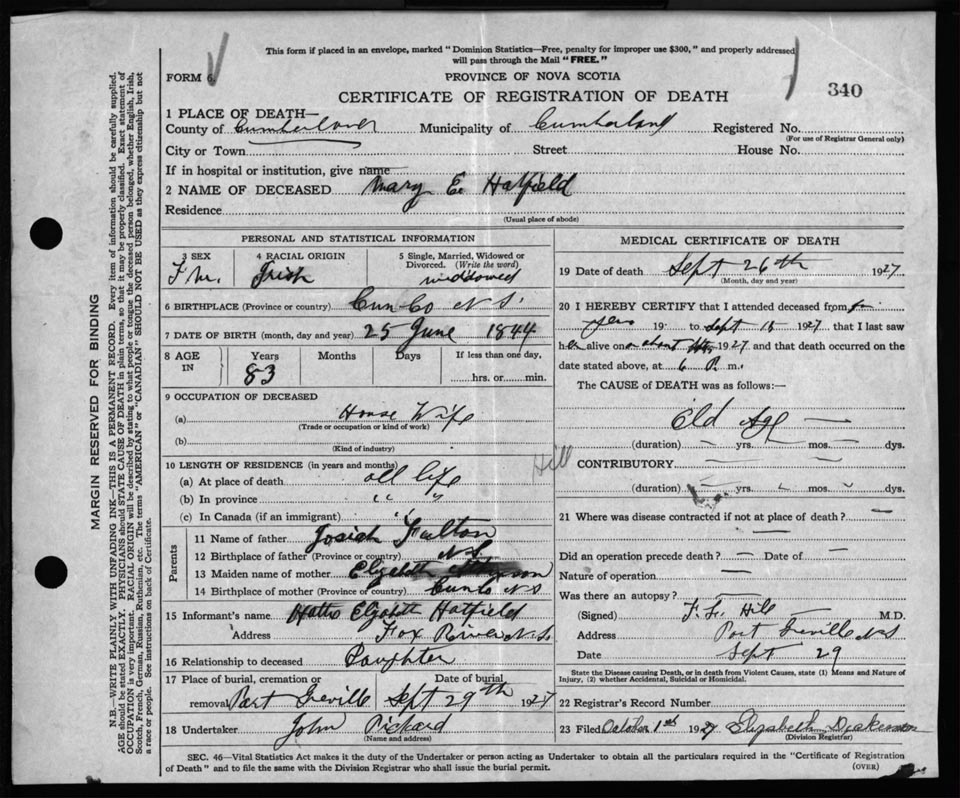 This form if placed in an envelope, marked "Dominion Statistics—Free, penalty for improper use $300," and properly addressed
will pass through the Mail "FREE."
FORM 6.
PROVINCE OF NOVA SCOTIA
340
CERTIFICATE OF REGISTRATION OF DEATH
1 PLACE OF DEATH—
County of Cumberland Municipality of Cumberland Registered No.
(For use of Registrar General only)
City or Town Street House No.
If in hospital or institution, give name
2 NAME OF DECEASED Mary E. Hatfield
Residence
(Usual place of abode)
PERSONAL AND STATISTICAL INFORMATION
3 SEX 4 RACIAL ORIGIN 5 Single, Married, Widowed or
Divorced. (Write the word)
Fm. Irish widdowed
6 BIRTHPLACE (Province or country) Cum Co N S.
7 DATE OF BIRTH (month, day and year) 25 June 1844
8 AGE IN Years Months Days If less than one day,
83 hrs. or min.
9 OCCUPATION OF DECEASED
(a) House Wife
(Trade or occupation or kind of work)
(b)
(Kind of industry)
10 LENGTH OF RESIDENCE (in years and months)
(a) At place of death all life
(b) In province " "
(c) In Canada (if an immigrant) "
Parents
11 Name of father Josiah Fulton
12 Birthplace of father (Province or country) N.S.
13 Maiden name of mother Elizabeth
14 Birthplace of mother (Province or country) N S
15 Informant's name Elizabeth Hatfield
Address Fox River N.S.
16 Relationship to deceased Daughter
17 Place of burial, cremation or Date of burial
removal Port Greville Sept 29th 1927
18 Undertaker John Pickard
(Name and address)
MEDICAL CERTIFICATE OF DEATH
19 Date of death Sept 26th 1927
(Month, day and year)
20 I HEREBY CERTIFY that I attended deceased from for
yrs 19 to Sept 1927 that I last saw
her alive on 1927 and that death occurred on the
date stated above, at 6 P. m.
The CAUSE of DEATH was as follows:—
Old Age —
(duration) — yrs. — mos. — dys.
Hill
CONTRIBUTORY — —
(duration) yrs. mos. dys.
21 Where was disease contracted if not at place of death? —
Did an operation precede death? — Date of —
Nature of operation —
Was there an autopsy? —
(Signed) M.D.
Address Port Greville N S
Date Sept 29
State the Disease causing Death, or in death from Violent Causes, state (1) Means and Nature
of Injury, (2) whether Accidental, Suicidal or Homicidal.
22 Registrar's Record Number
23 Filed October 1st 1927 Elizabeth
(Division Registrar)
SEC. 46—Vital Statistics Act makes it the duty of the Undertaker or person acting as Undertaker to obtain all the particulars required in the "Certificate of Registration
of Death" and to file the same with the Division Registrar who shall issue the burial permit.
(OVER)
MARGIN RESERVED FOR BINDING
N.B.—WRITE PLAINLY WITH UNFADING INK—THIS IS A PERMANENT RECORD. Every item of information should be carefully supplied.
AGE should be stated EXACTLY. PHYSICIANS should STATE CAUSE OF DEATH in plain terms, so that it may be properly classified. Exact statement of
OCCUPATION is very important. RACIAL ORIGIN will be described by stating to what people or tongue the deceased person belonged, whether English, Irish,
Scotch, French, German, Russian, Ruthenian, etc. The terms "AMERICAN" or "CANADIAN" SHOULD NOT BE USED as they express citizenship but not
a race or people. See instructions on back of Certificate.